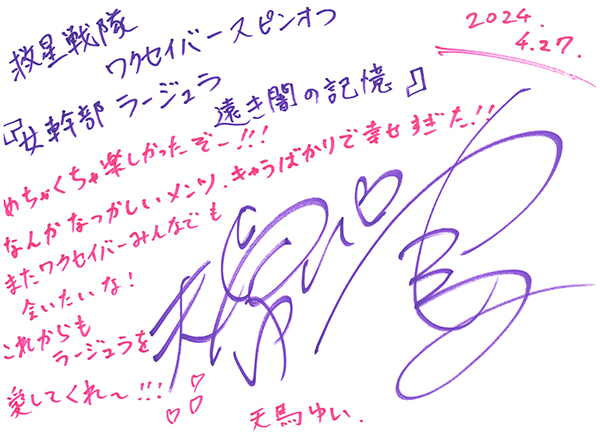 救星戦隊
ワクセイバースピンオフ
『女幹部 ラージュラ
遠き闇の記憶』
2024.
4.27.
めちゃくちゃ楽しかったぞー!!!
なんかなつかしいメンツ、キャラばかりで幸せすぎた!!
またワクセイバーみんなでも
会いたいな!
これからも
ラージュラを
愛してくれ～!!!
天馬ゆい.